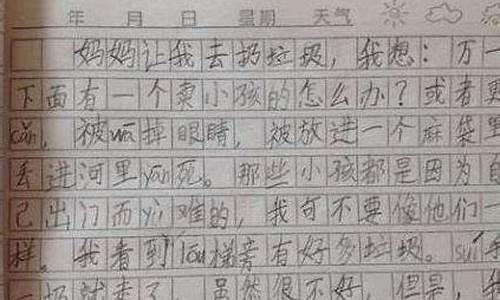 年 月 日 星期 天气
妈妈让我去扔垃圾，我想：万一
下面有一个卖小孩的怎么办？或者更
cǎn，被wā掉眼睛，被放进一个麻袋里
丢进河里yān死。那些小孩都是因为自
己出门而yù难的，我可不要像他们一
样。我看到lóu梯旁有好多垃圾。suí手
一扔就走了 虽然很不好，但是，